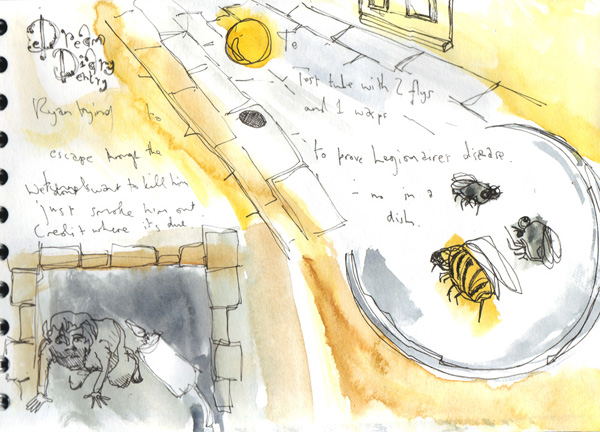 Dream
Diary
Entry
Ryan trying to
escape through the
want to kill him
just smoke him out.
Credit where it's due
To
Test tube with 2 flys
and 1 wasp
to prove Legionaires disease.
- no in a
dish.